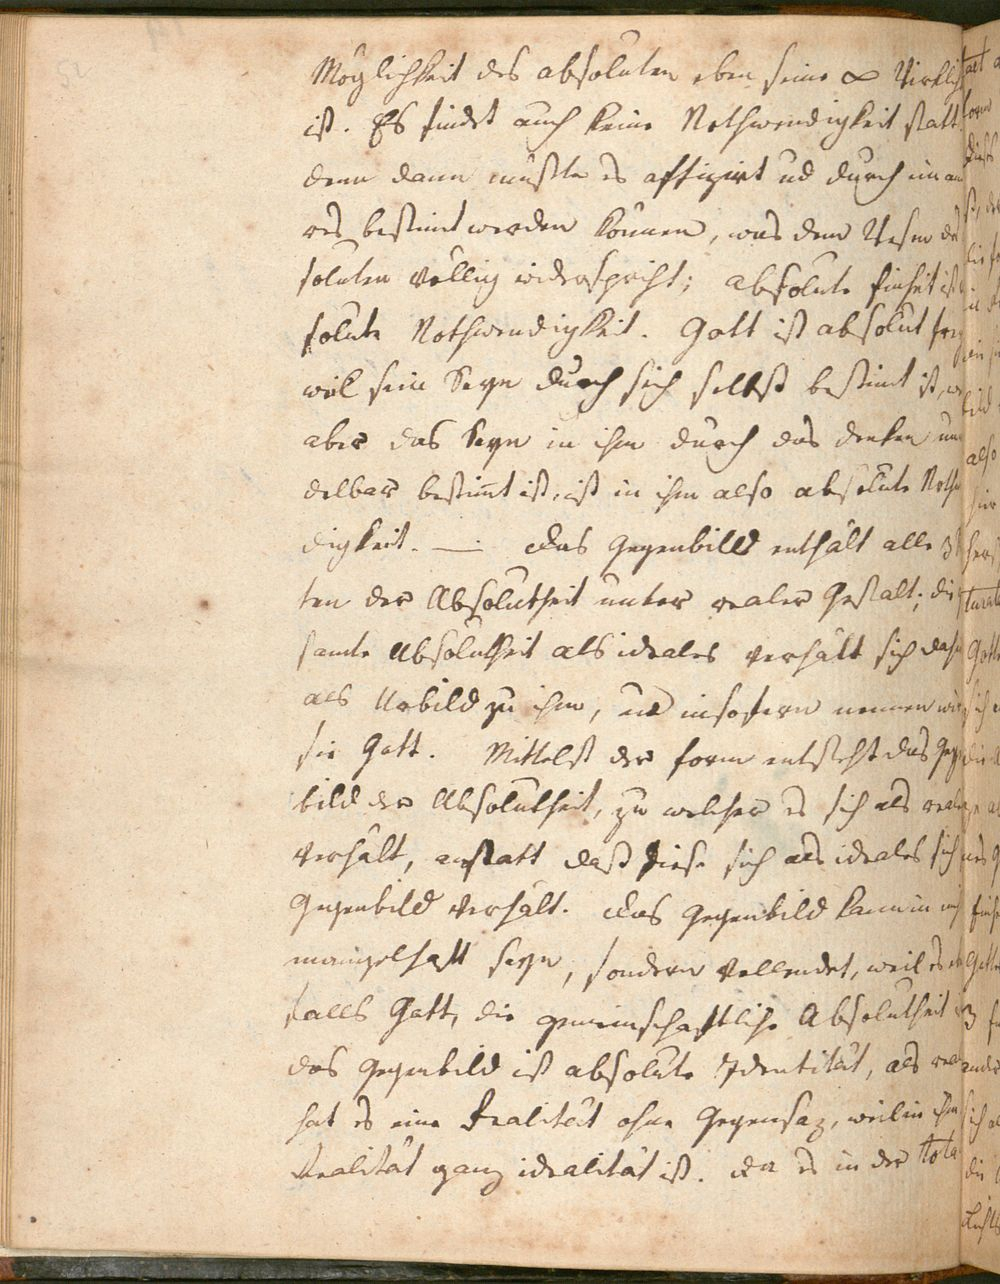 Möglichkeit des absoluten eben seine ∞ Wirklich
ist. Es findet auch keine Nothwendigkeit statt,
denn dann müßte es affizirt ud durch ein an
res bestimt werden können, was dem Wesen des
soluten völlig widerspricht; absolute freiheit ist
solute Nothwendigkeit. Gott ist absolut frey
weil sein Seyn durch sich selbst bestimt ist,
aber das Seyn in ihm durch das denken un
delbar bestimt ist, ist in ihm also absolute Nothw
digkeit. — Das Gegenbild enthält alle 3
ten der Absolutheit unter realer Gestalt; die
samte Absolutheit als ideales verhält sich daher
als Urbild zu ihm, ud insofern nennen wir
sie Gott. Mittelst der form entsteht das Geg
bild der Absolutheit, zu welcher es sich als reales
verhält, anstatt daß diese sich als ideales sich
Gegenbild verhält. Das Gegenbild kann in
mangelhaft seyn, sondern vollendet, weil es
falls Gott, die gemeinschaftliche Absolutheit
das Gegenbild ist absolute Identität, als real
hat es eine Realität ohne Gegensaz, weil in ihm
Realität ganz idealität ist. Da es in der tota